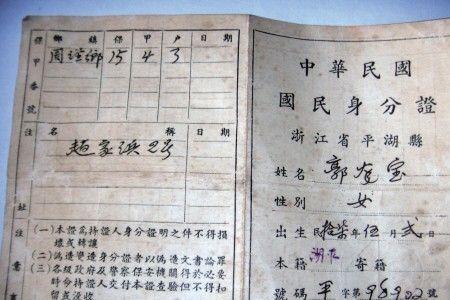 鄉鎮 保 甲 戶 日期
鄉 15 4 3
保甲番號
註
名稱 日期
趙家浜 2号
址
註
意
事
(一)本證為持證人身分證明之件不得損
壞或轉讓
(二)偽造變造身分證者以偽造文書論罪
(三)各級政府及警察保安機關得於必要
時令持證人交付本證查驗但不得扣
留或沒收
中華民國
國民身分證
浙江省平湖縣
姓名 郭 宝
性別 女
出生民拾柒年伍月貳日
本籍 寄籍
號碼 平字第